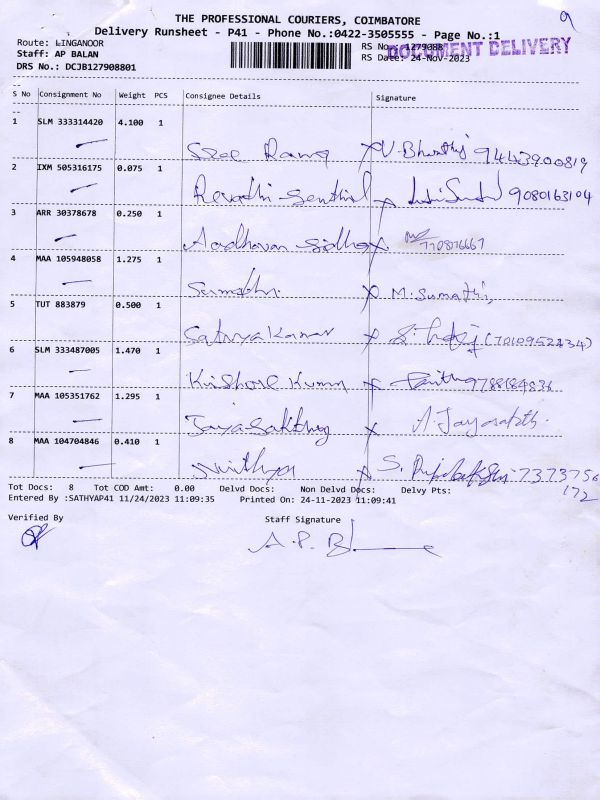 9
THE PROFESSIONAL COURIERS, COIMBATORE
Delivery Runsheet - P41 - Phone No.:0422-3505555 - Page No.:1
Route: LINGANOOR
Staff: AP BALAN
DRS No.: DCJB127908801
RS No.: 1279088
RS Date: 24-Nov-2023
DOCUMENT DELIVERY
S No Consignment No Weight PCS Consignee Details Signature
1 SLM 333314420 4.100 1
Sree Rama X V. Bharathij 9443900819
2 IXM 505316175 0.075 1
Revathi Senthil X 9080163104
3 ARR 30378678 0.250 1
Aadhavan Sidha X
4 MAA 105948058 1.275 1
Sumathi X M. Sumathi,
5 TUT 883879 0.500 1
Sathyakumar X (7010952434)
6 SLM 333487005 1.470 1
Kishore Kumar X
7 MAA 105351762 1.295 1
Jayasakthy X
8 MAA 104704846 0.410 1
Nivithya X S. 7373756
172
Tot Docs: 8 Tot COD Amt: 0.00 Delvd Docs: Non Delvd Docs: Delvy Pts:
Entered By :SATHYAP41 11/24/2023 11:09:35 Printed On: 24-11-2023 11:09:41
Verified By Staff Signature
A.P. B